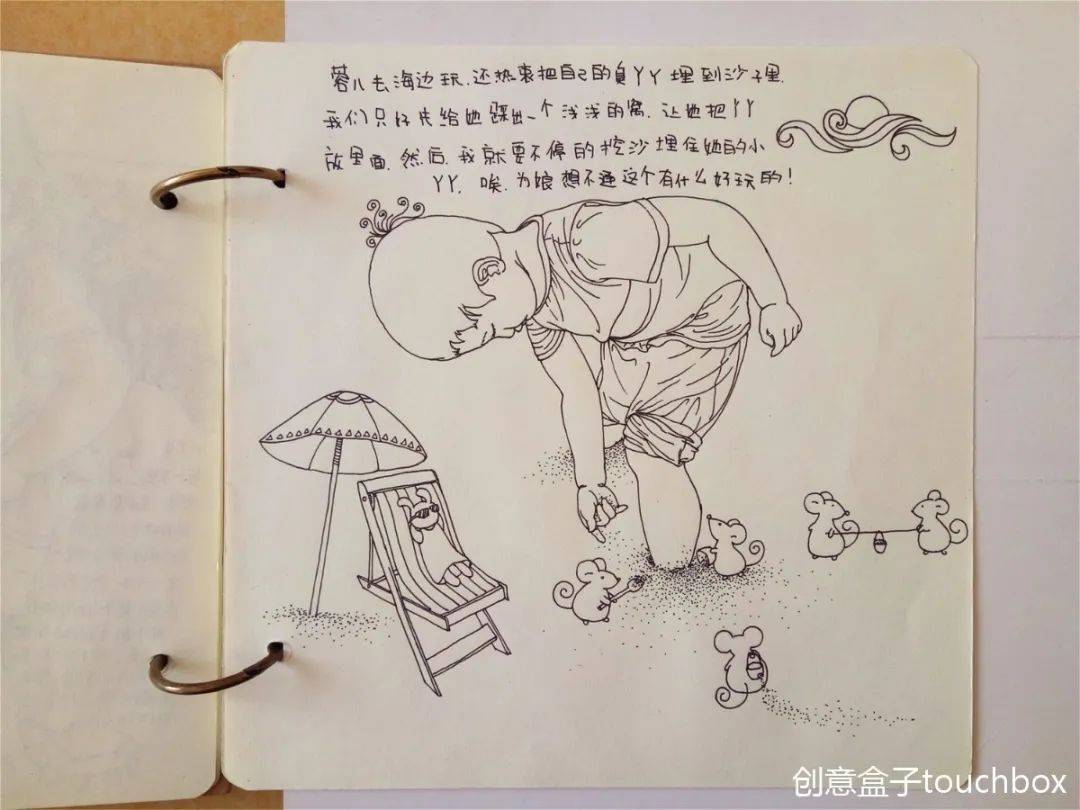 蓉儿去海边玩,还热衷把自己的臭丫丫埋到沙子里.
我们只好先给她踩出一个浅浅的窝,让她把丫丫
放里面,然后,我就要不停的挖沙埋住她的小
丫丫,唉,为娘想不通这个有什么好玩的!
创意盒子touchbox